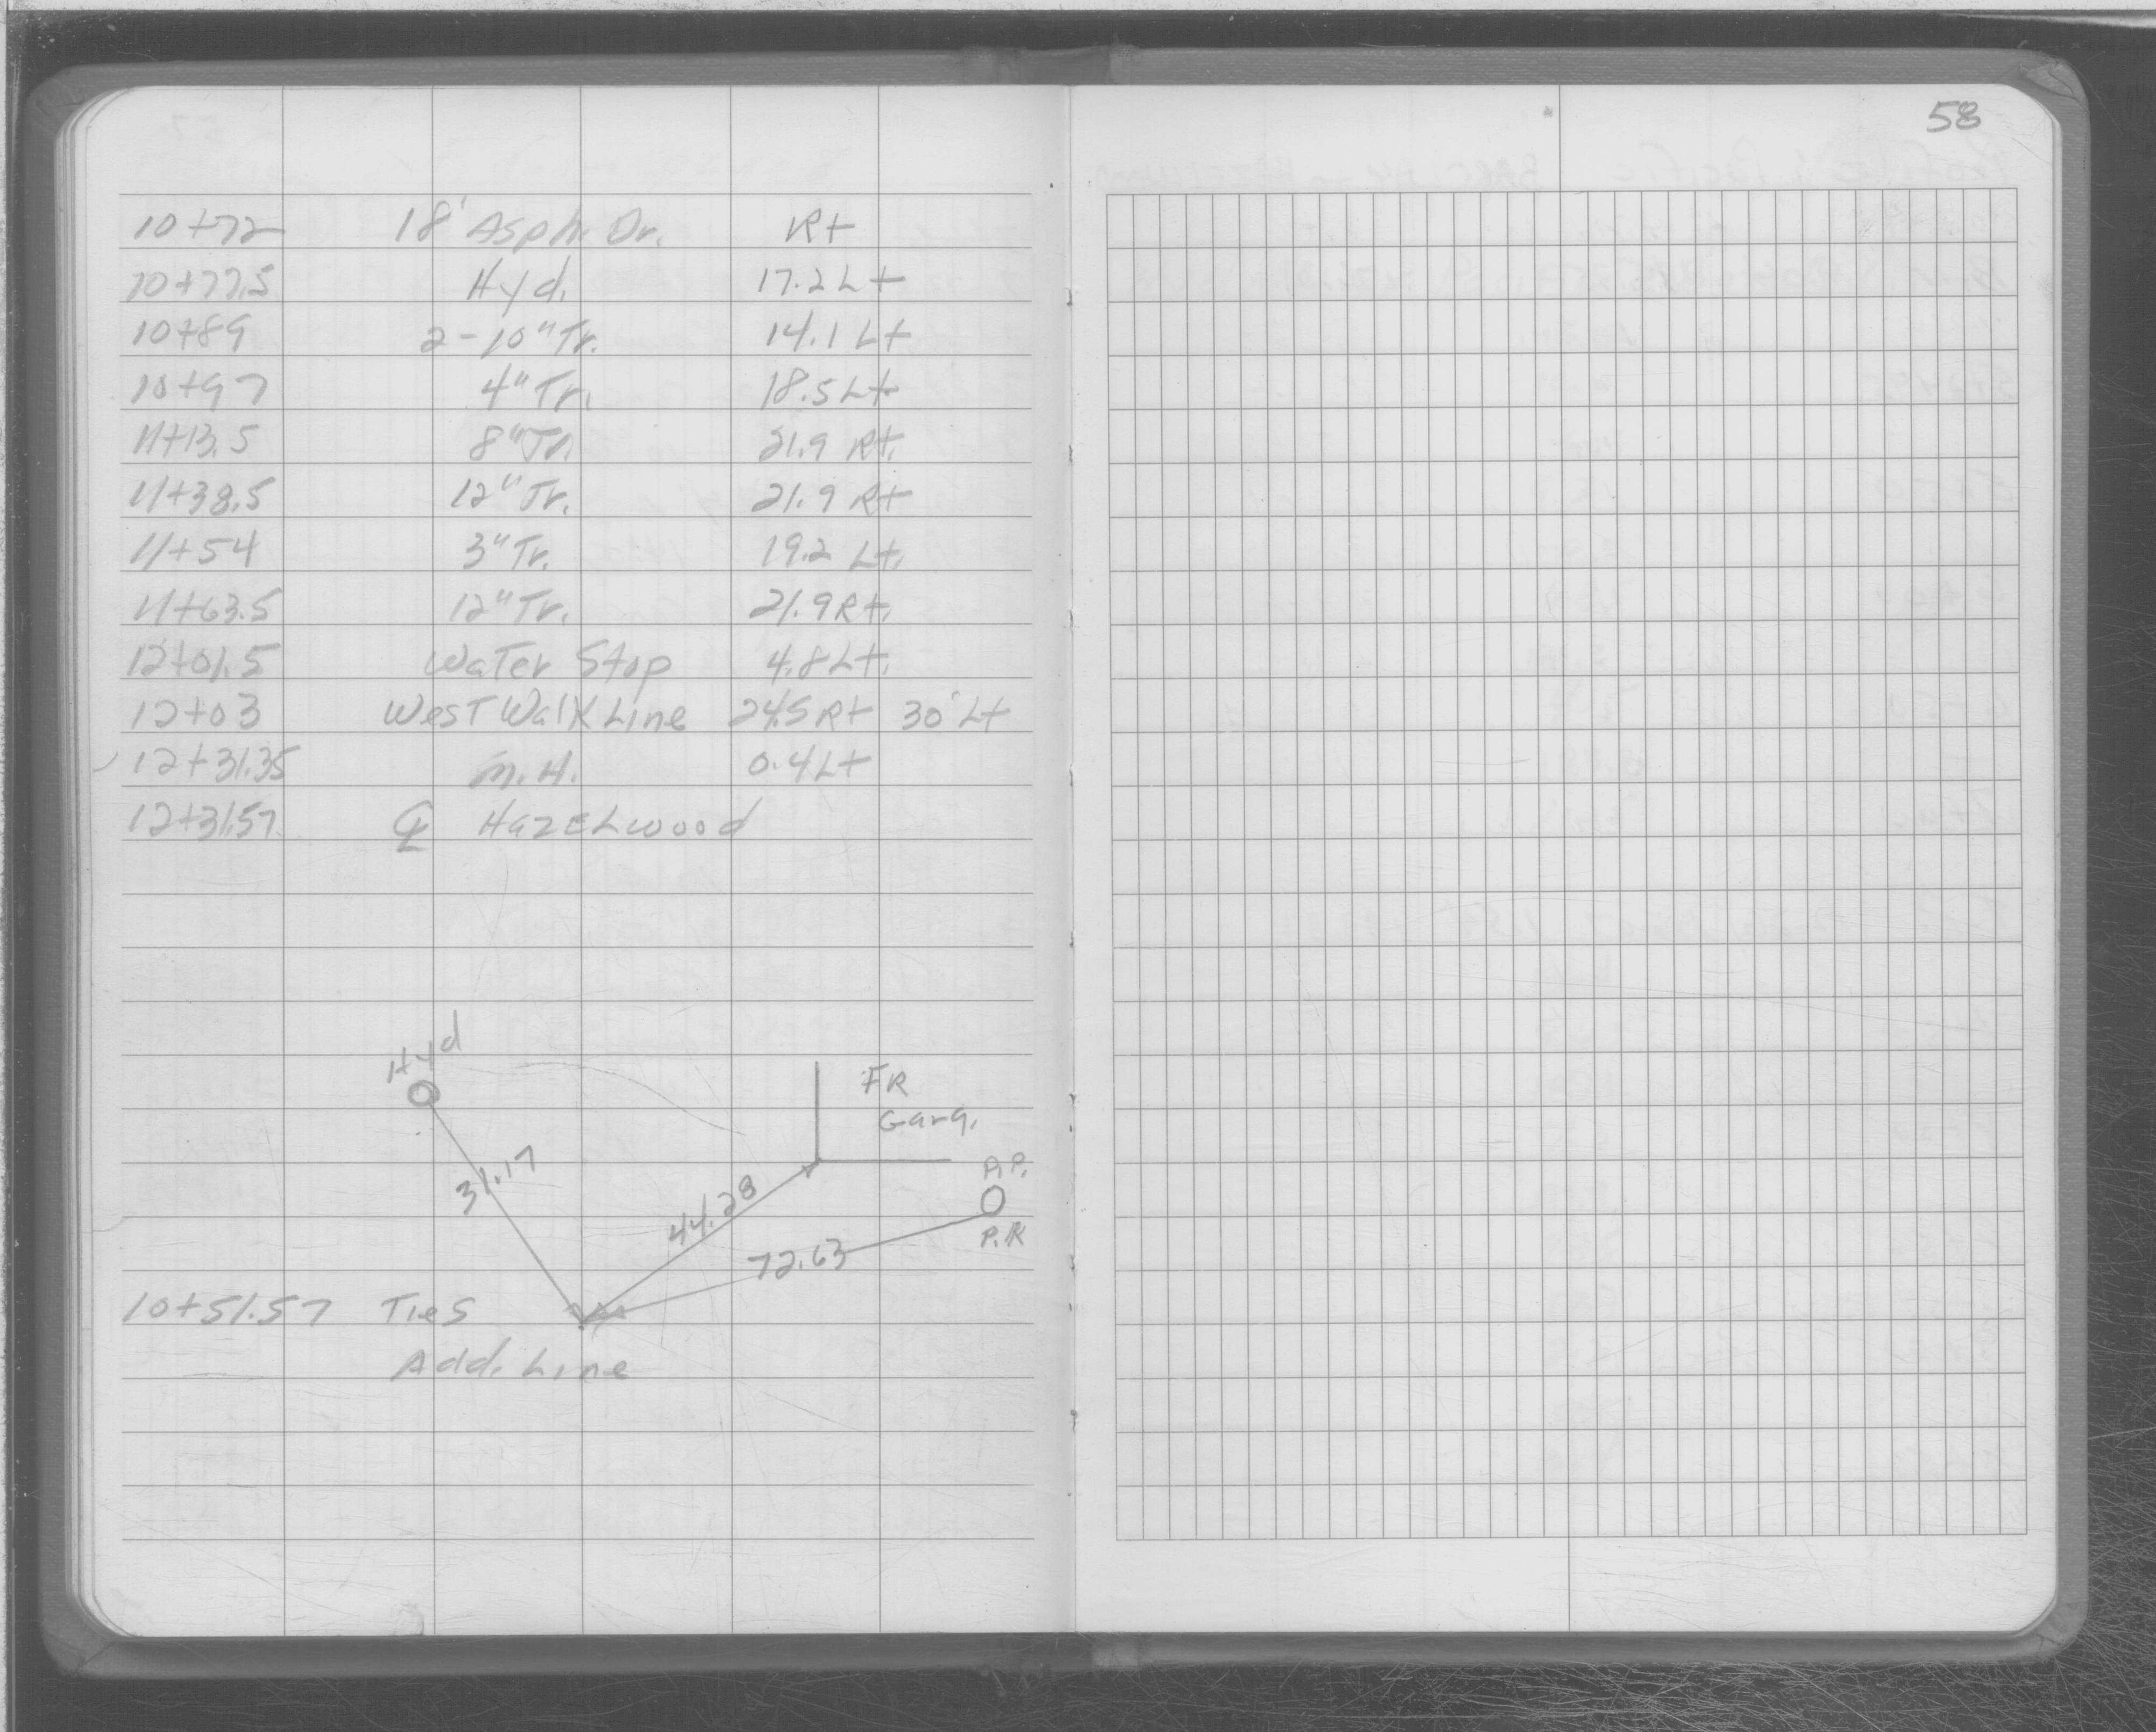 58
10+72 18' Asph. Dr. Rt
10+77.5 Hyd. 17.2 Lt
10+89 2-10" Tr. 14.1 Lt
10+97 4" Tr. 18.5 Lt
11+13.5 8" Tr. 21.9 Rt.
11+38.5 12" Tr. 21.9 Rt
11+54 3" Tr. 19.2 Lt.
11+63.5 12" Tr. 21.9 Rt.
12+01.5 Water Stop 4.8 Lt.
12+03 West Walk Line 24.5 Rt 30' Lt
12+31.35 M.H. 0.4 Lt
12+31.57 ℄ Hazelwood
Hyd
FR
Garg.
31.17
44.28
P.R
72.63
10+51.57 Ties
Add. Line